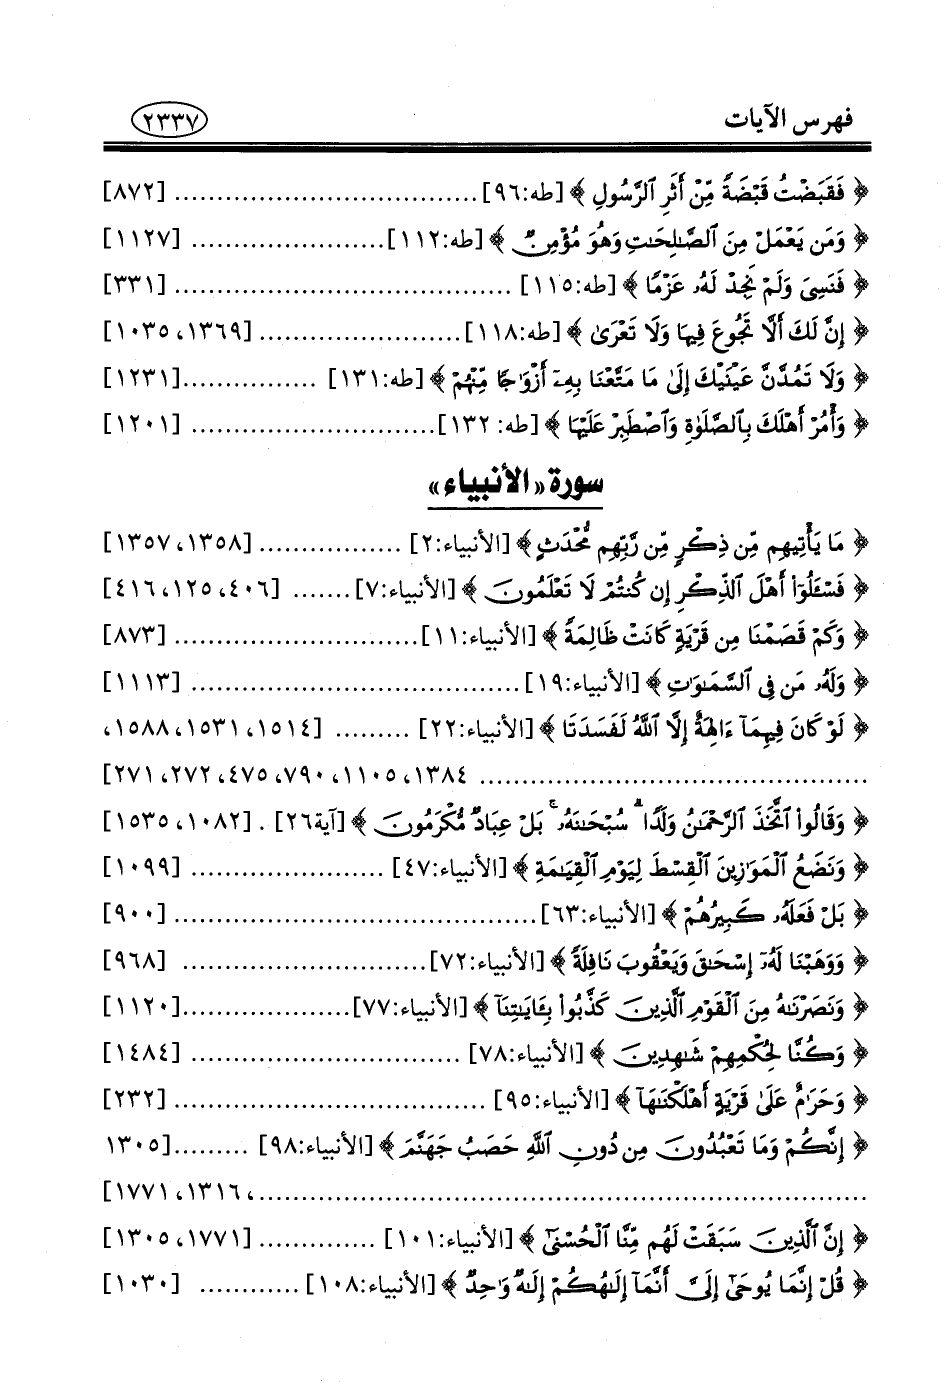 فهرس الآيات ٢٣٣٧
﴿ فَقَبَضْتُ قَبْضَةً مِّنْ أَثَرِ ٱلرَّسُولِ ﴾ [طه:٩٦]................................... [٨٧٢]
﴿ وَمَن يَعْمَلْ مِنَ ٱلصَّـٰلِحَـٰتِ وَهُوَ مُؤْمِنٌ ﴾ [طه:١١٢]....................... [١١٢٧]
﴿ فَنَسِىَ وَلَمْ نَجِدْ لَهُۥ عَزْمًا ﴾ [طه:١١٥] ....................................... [٣٣١]
﴿ إِنَّ لَكَ أَلَّا تَجُوعَ فِيهَا وَلَا تَعْرَىٰ ﴾ [طه:١١٨]........................ [١٣٦٩، ١٠٣٥]
﴿ وَلَا تَمُدَّنَّ عَيْنَيْكَ إِلَىٰ مَا مَتَّعْنَا بِهِۦٓ أَزْوَٰجًا مِّنْهُمْ ﴾ [طه:١٣١] ................[١٢٣١]
﴿ وَأْمُرْ أَهْلَكَ بِٱلصَّلَوٰةِ وَٱصْطَبِرْ عَلَيْهَا ﴾ [طه: ١٣٢]............................. [١٢٠١]
سورة «الأنبياء»
﴿ مَا يَأْتِيهِم مِّن ذِكْرٍ مِّن رَّبِّهِم مُّحْدَثٍ ﴾ [الأنبياء:٢] .................[١٣٥٨، ١٣٥٧]
﴿ فَسْـَٔلُوٓا۟ أَهْلَ ٱلذِّكْرِ إِن كُنتُمْ لَا تَعْلَمُونَ ﴾ [الأنبياء:٧]....... [٤٠٦، ١٢٥، ٤١٦]
﴿ وَكَمْ قَصَمْنَا مِن قَرْيَةٍ كَانَتْ ظَالِمَةً ﴾ [الأنبياء:١١]............................. [٨٧٣]
﴿ وَلَهُۥ مَن فِى ٱلسَّمَـٰوَٰتِ ﴾ [الأنبياء:١٩]....................................... [١١١٣]
﴿ لَوْ كَانَ فِيهِمَآ ءَالِهَةٌ إِلَّا ٱللَّهُ لَفَسَدَتَا ﴾ [الأنبياء:٢٢] ......... [١٥١٤، ١٥٣١، ١٥٨٨،
.............................................. ١٣٨٤، ١١٠٥، ٧٩٠، ٤٧٥، ٢٧٢، ٢٧١]
﴿ وَقَالُوا۟ ٱتَّخَذَ ٱلرَّحْمَـٰنُ وَلَدًا ۗ سُبْحَـٰنَهُۥ ۚ بَلْ عِبَادٌ مُّكْرَمُونَ ﴾ [آية٢٦] . [١٠٨٢، ١٥٣٥]
﴿ وَنَضَعُ ٱلْمَوَٰزِينَ ٱلْقِسْطَ لِيَوْمِ ٱلْقِيَـٰمَةِ ﴾ [الأنبياء:٤٧] ....................... [١٠٩٩]
﴿ بَلْ فَعَلَهُۥ كَبِيرُهُمْ ﴾ [الأنبياء:٦٣]........................................... [٩٠٠]
﴿ وَوَهَبْنَا لَهُۥٓ إِسْحَـٰقَ وَيَعْقُوبَ نَافِلَةً ﴾ [الأنبياء:٧٢]............................. [٩٦٨]
﴿ وَنَصَرْنَـٰهُ مِنَ ٱلْقَوْمِ ٱلَّذِينَ كَذَّبُوا۟ بِـَٔايَـٰتِنَآ ﴾ [الأنبياء:٧٧]....................[١١٢٠]
﴿ وَكُنَّا لِحُكْمِهِمْ شَـٰهِدِينَ ﴾ [الأنبياء:٧٨] ................................ [١٤٨٤]
﴿ وَحَرَٰمٌ عَلَىٰ قَرْيَةٍ أَهْلَكْنَـٰهَآ ﴾ [الأنبياء:٩٥] ..................................... [٢٣٢]
﴿ إِنَّكُمْ وَمَا تَعْبُدُونَ مِن دُونِ ٱللَّهِ حَصَبُ جَهَنَّمَ ﴾ [الأنبياء:٩٨] .........[١٣٠٥
........................................................................، ١٣١٦، ١٧٧١]
﴿ إِنَّ ٱلَّذِينَ سَبَقَتْ لَهُم مِّنَّا ٱلْحُسْنَىٰٓ ﴾ [الأنبياء:١٠١] ..............[١٧٧١، ١٣٠٥]
﴿ قُلْ إِنَّمَا يُوحَىٰٓ إِلَىَّ أَنَّمَآ إِلَـٰهُكُمْ إِلَـٰهٌ وَٰحِدٌ ﴾ [الأنبياء:١٠٨] ............ [١٠٣٠]